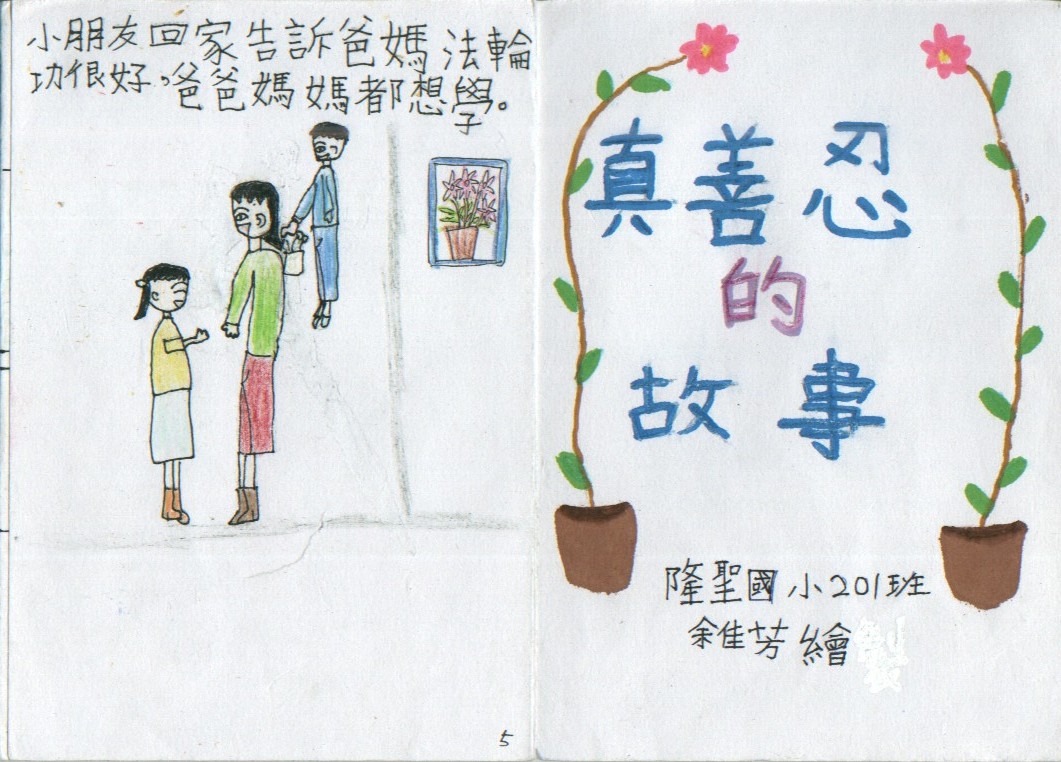 小朋友回家告訴爸媽法輪
功很好。爸爸媽媽都想學。
5
真善忍
的
故事
隆聖國小201班
余佳芳繪